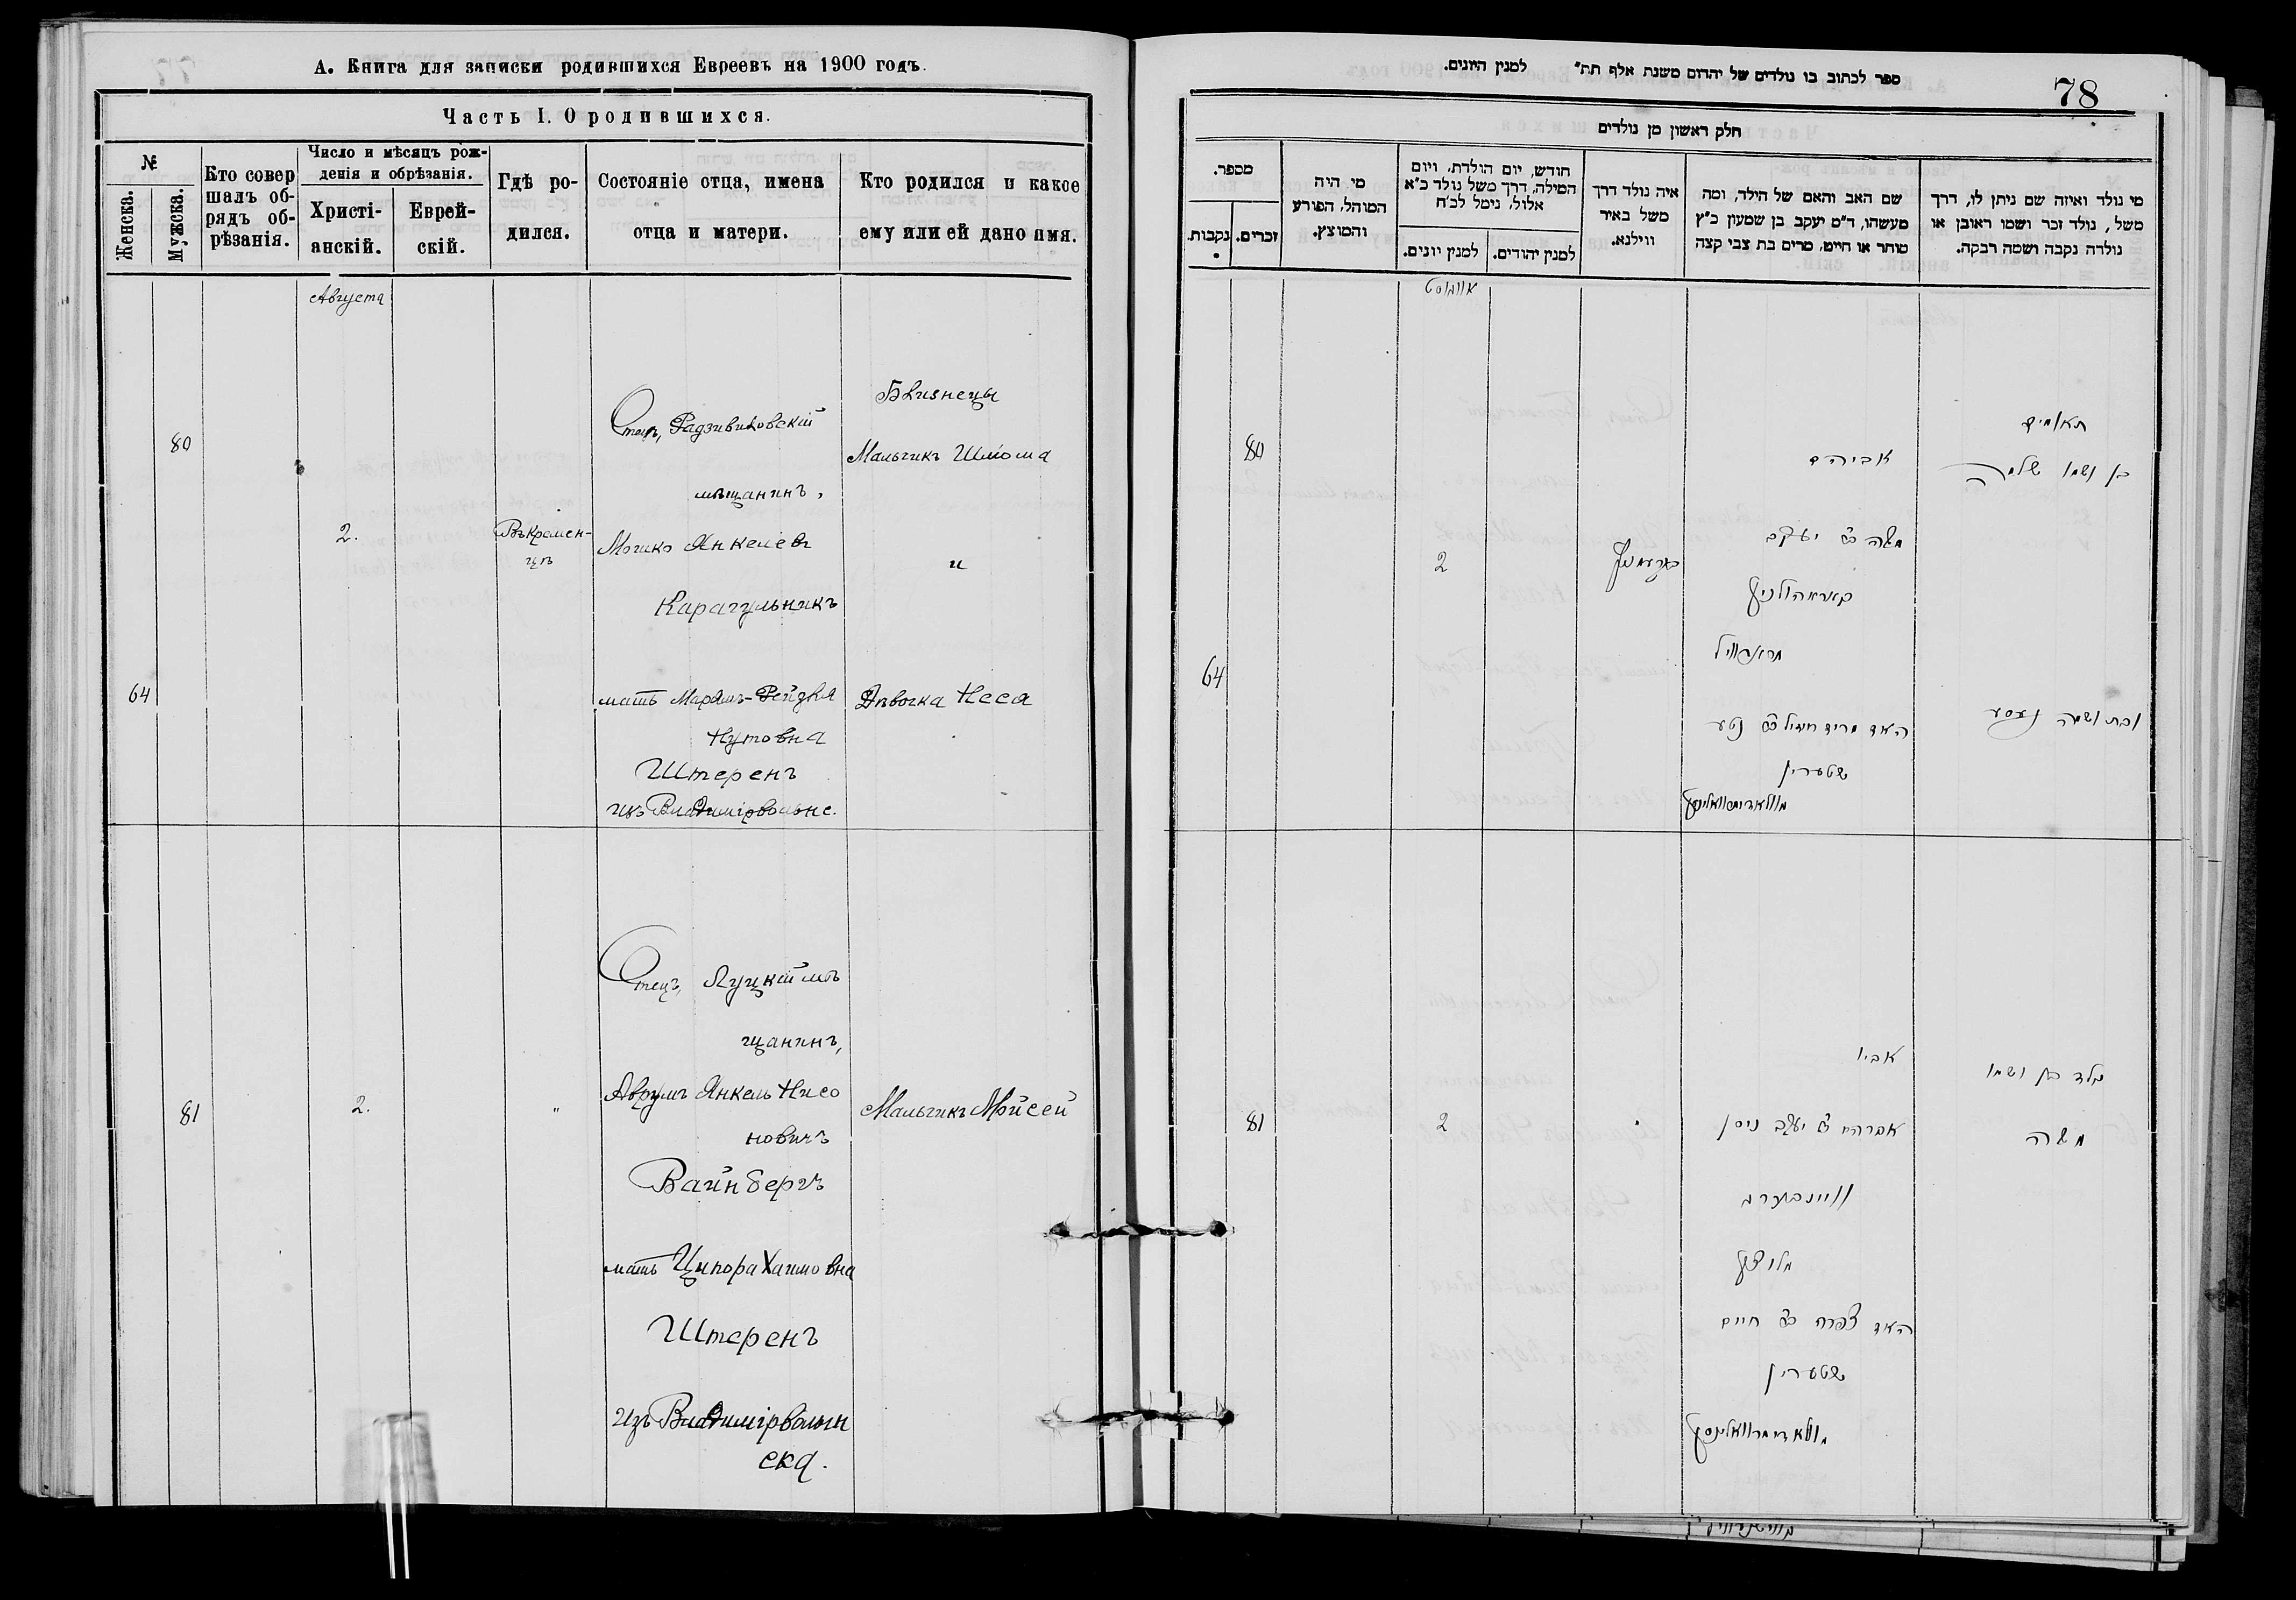 А. Книга для записки родившихся Евреевъ на 1900 годъ.
Часть I. О родившихся.
№
Женска.
Мужска.
Кто совер
шалъ об-
рядъ об-
рѣзанія.
Число и мѣсяцъ рож-
денія и обрѣзанія.
Христі-
анскій.
Еврей-
скій.
Гдѣ ро-
дился.
Состояніе отца, имена
отца и матери.
Кто родился и какое
ему или ей дано имя.
Августа
80
64
2.
Въ Кремен-
цѣ
Отецъ, Радзивиловскій
мѣщанинъ,
Мошко Янкелевъ
Карагульникъ
мать Марямъ-Рейзля
Нутовна
Штеренъ
изъ Владимірволынс.
Близнецы
Мальчикъ Шлома
и
Дѣвочка Неса
81
2.
"
Отецъ, Луцкій мѣ
щанинъ,
Аврумъ Янкель Нисо
новичъ
Вайнбергъ
мать Ципора Хаимовна
Штеренъ
изъ Владимірволын
ска.
Мальчикъ Мойсей
ספר לכתוב בו נולדים של יהדום משנת אלף תת״ למנין היונים.
78
חלק ראשון מן נולדים
מי נולד ואיזה שם ניתן לו, דרך
משל, נולד זכר ושמו ראובן או
נולדה נקבה ושמה רבקה.
שם האב והאם של הילד, ומה
מעשהו, ד״מ יעקב בן שמעון כ״ץ
סוחר או חייט, מרים בת צבי קצה
איה נולד דרך
משל באיר
ווילנא.
חודש, יום הולדת, ויום
המילה, דרך משל נולד כ״א
אלול, נימל לכ״ח
למנין יהודים.
למנין יונים.
מי היה
המוהל, הפורע
והמוצץ.
מספר.
זכרים.
נקבות.
אווגוסט
תאומים
בן ושמו שלמה
ובת ושמה נעסע
אביהם
משה ב״ר יעקב
האם מרים רייזיל ב״ר נטע
שטערין
קרעמניץ
2
80
64
נולד בן ושמו
משה
אביו
אברהם יעקב ניסן
וויינבערג
מלוצק
האם צפרה ב״ר חיים
שטערין
2
81